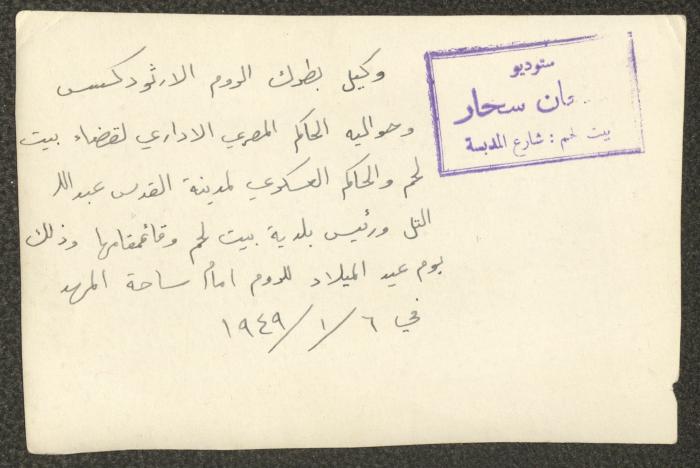 ستوديو
ـمان سحار
بيت لحم : شارع المدبسة
وكيل بطرك الروم الارثودكس
وحواليه الحاكم المصري الاداري لقضاء بيت
لحم والحاكم العسكري لمدينة القدس عبدالله
التل ورئيس بلدية بيت لحم وقائمقامها وذلك
يوم عيد الميلاد للروم امام ساحة المهد
في ٦ / ١ / ١٩٤٩